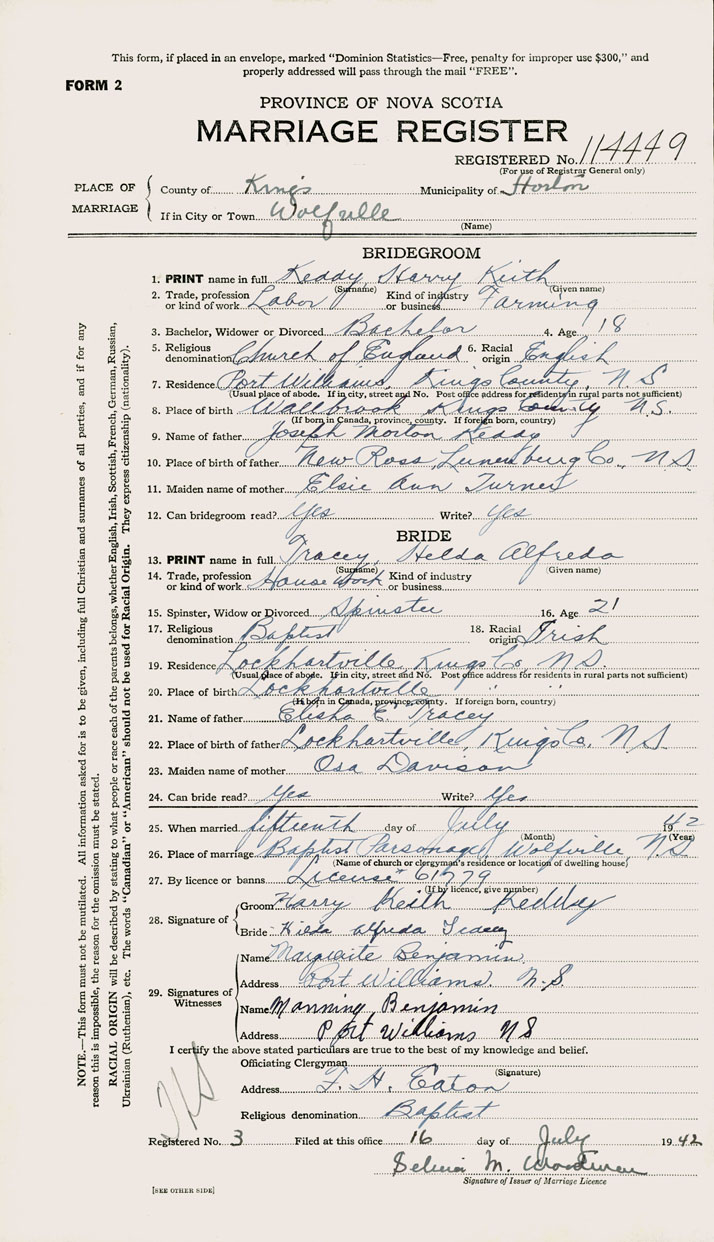 This form, if placed in an envelope, marked "Dominion Statistics—Free, penalty for improper use $300," and
properly addressed will pass through the mail "FREE".
FORM 2
PROVINCE OF NOVA SCOTIA
MARRIAGE REGISTER
REGISTERED No. 114449
(For use of Registrar General only)
PLACE OF MARRIAGE
County of Kings Municipality of Horton
If in City or Town Wolfville
(Name)
BRIDEGROOM
1. PRINT name in full Keddy, Harry Keith
(Surname) (Given name)
2. Trade, profession or kind of work Labor Kind of industry or business Farming
3. Bachelor, Widower or Divorced Bachelor 4. Age 18
5. Religious denomination Church of England 6. Racial origin English
7. Residence Port Williams, Kings County, N.S
(Usual place of abode. If in city, street and No. Post office address for residents in rural parts not sufficient)
8. Place of birth Wallbrook Kings County N.S.
(If born in Canada, province, county. If foreign born, country)
9. Name of father Joseph Morton Keddy
10. Place of birth of father New Ross, Lunenburg Co., N.S.
11. Maiden name of mother Elsie Ann Turner
12. Can bridegroom read? Yes Write? Yes
BRIDE
13. PRINT name in full Tracey, Helda Alfreda
(Surname) (Given name)
14. Trade, profession or kind of work House Work Kind of industry or business
15. Spinster, Widow or Divorced Spinster 16. Age 21
17. Religious denomination Baptist 18. Racial origin Irish
19. Residence Lockhartville, Kings Co, N.S.
(Usual place of abode. If in city, street and No. Post office address for residents in rural parts not sufficient)
20. Place of birth Lockhartville " "
(If born in Canada, province, county. If foreign born, country)
21. Name of father Elisha E. Tracey
22. Place of birth of father Lockhartville, Kings Co. N.S.
23. Maiden name of mother Osa Davison
24. Can bride read? Yes Write? Yes
25. When married fifteenth day of July 1942
(Month) (Year)
26. Place of marriage Baptist Parsonage, Wolfville, N.S
(Name of church or clergyman's residence or location of dwelling house)
27. By licence or banns License 61779
(If by licence, give number)
28. Signature of
Groom Harry Keith Kedddy
Bride Hilda Alfreda Tracey
29. Signatures of Witnesses
Name Marguaite Benjamin
Address Port Williams. N.S.
Name Manning Benjamin
Address Port Williams NS
I certify the above stated particulars are true to the best of my knowledge and belief.
Officiating Clergyman
(Signature)
Address F. H. Eaton
Religious denomination Baptist
Registered No. 3 Filed at this office 16 day of July 1942
Selina M. Woodman
Signature of Issuer of Marriage Licence
[SEE OTHER SIDE]
NOTE.—This form must not be mutilated. All information asked for is to be given, including full Christian and surnames of all parties, and if for any
reason this is impossible, the reason for the omission must be stated.
RACIAL ORIGIN will be described by stating to what people or race each of the parents belongs, whether English, Irish, Scottish, French, German, Russian,
Ukrainian (Ruthenian), etc. The words "Canadian" or "American" should not be used for Racial Origin. They express citizenship (nationality).